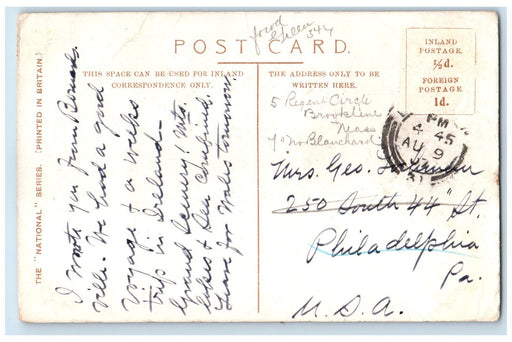 POST CARD.
THIS SPACE CAN BE USED FOR INLAND
CORRESPONDENCE ONLY.
THE ADDRESS ONLY TO BE
WRITTEN HERE.
INLAND
POSTAGE
½d.
FOREIGN
POSTAGE
1d.
THE "NATIONAL" SERIES. (PRINTED IN BRITAIN.)
I wrote you from Bernards
ville. We had a good
voyage & a weeks
trip in Ireland—
Grand Scenery! Mts.
lakes & Sea combined.
Leave for Wales tomorrow.
5 Regent Circle
Brookline
Mass
Blanchard
PM
4 45
AU 9
Mrs. Geo.
250 South 44" St.
Philadelphia
Pa.
U.S.A.